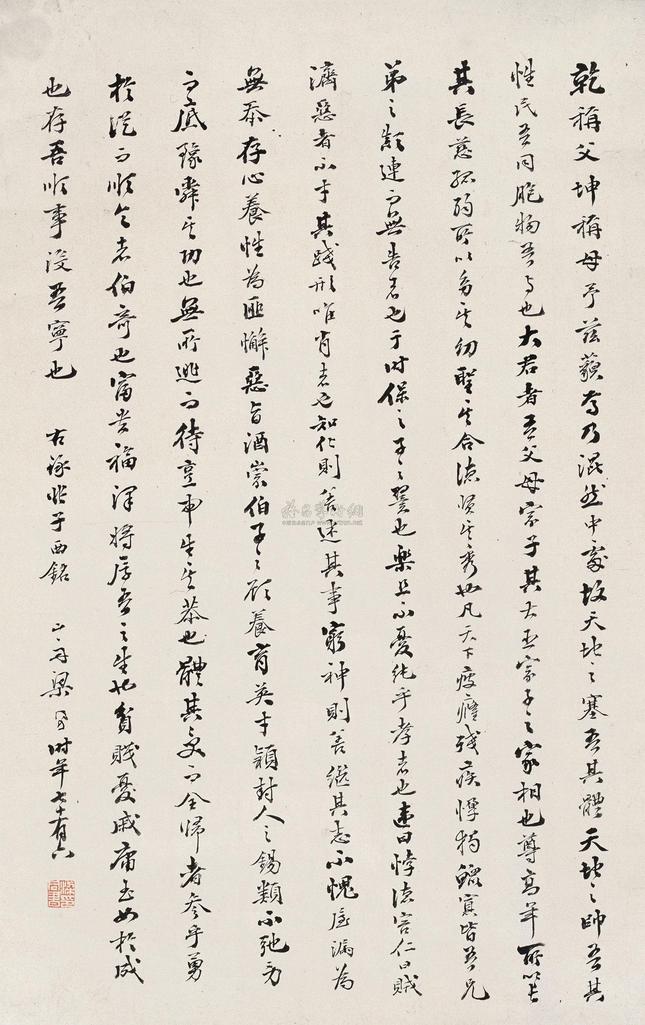 乾稱父坤稱母予茲藐焉乃混然中處故天地之塞吾其體天地之帥吾其
性民吾同胞物吾與也大君者吾父母宗子其大臣宗子之家相也尊高年所以
其長慈孤弱所以幼其幼聖其合德賢其秀也凡天下疲癃殘疾惸獨鰥寡皆吾兄
弟之顛連而無告者也于時保之子之翼也樂且不憂純乎孝者也違曰悖德害仁曰賊
濟惡者不才其踐形唯肖者也知化則善述其事窮神則善繼其志不愧屋漏為
無忝存心養性為匪懈惡旨酒崇伯子之顧養育英才潁封人之錫類不弛勞
而厎豫舜其功也無所逃而待烹申生其恭也體其受而全歸者參乎勇
於從而順令者伯奇也富貴福澤將厚吾之生也貧賤憂戚庸玉女於成
也存吾順事沒吾寧也
右張子西銘
山舟梁同書時年七十有六